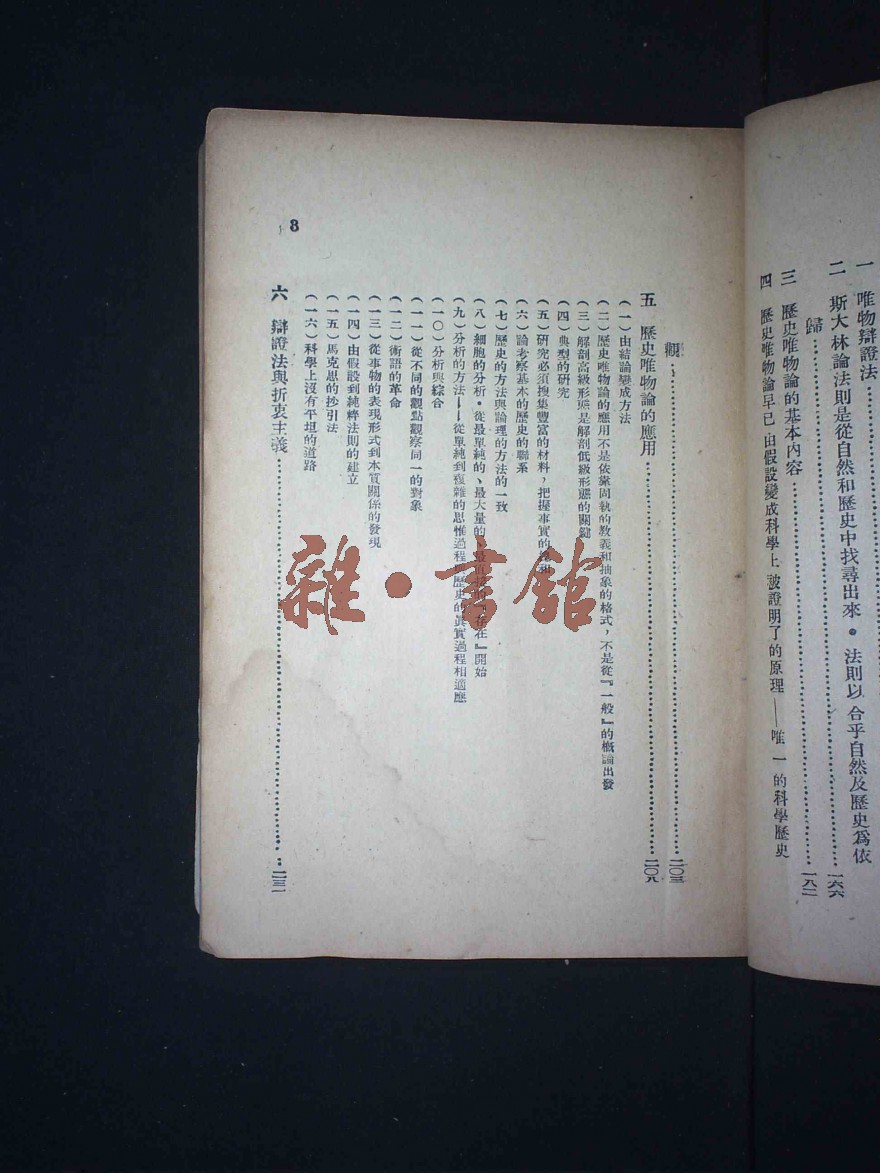 一 唯物辯證法
二 斯大林論法則是從自然和歷史中找尋出來。法則以合乎自然及歷史爲依
歸……一六六
三 歷史唯物論的基本內容……一八二
四 歷史唯物論早已由假設變成科學上被證明了的原理——唯一的科學歷史
觀……二〇三
五 歷史唯物論的應用……二〇九
(一)由結論變成方法
(二)歷史唯物論的應用不是依靠固執的教義和抽象的格式,不是從『一般』的概論出發
(三)解剖高級形態是解剖低級形態的關鍵
(四)典型的研究
(五)研究必須搜集豐富的材料,把握事實的
(六)論考察基本的歷史的聯系
(七)歷史的方法與論理的方法的一致
(八)細胞的分析。從最單純的、最大量的、最直接的『存在』開始
(九)分析的方法——從單純到複雜的思惟過程與歷史的眞實過程相適應
(一〇)分析與綜合
(一一)從不同的觀點觀察同一的對象
(一二)術語的革命
(一三)從事物的表現形式到本質關係的發現
(一四)由假設到純粹法則的建立
(一五)馬克思的抄引法
(一六)科學上沒有平坦的道路
六 辯證法與折衷主義……二三一
8
雜·書館